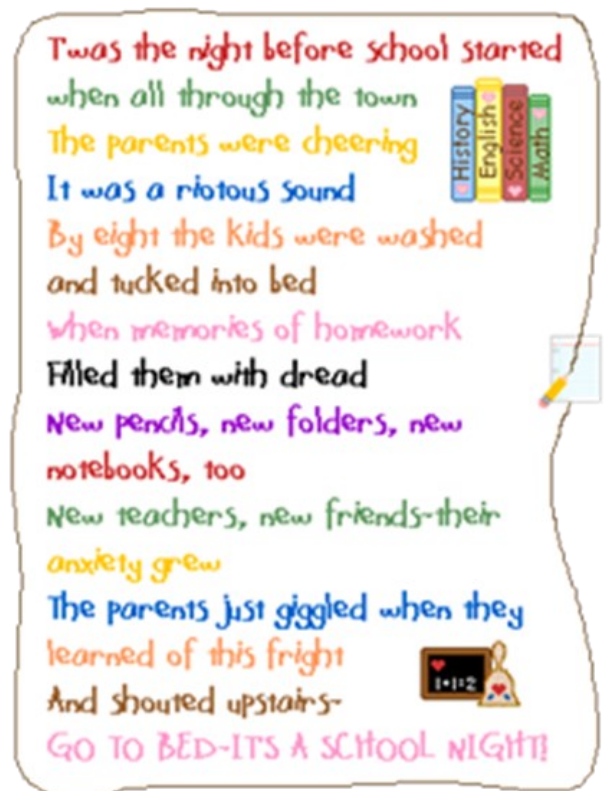 Twas the night before school started
when all through the town
The parents were cheering
It was a riotous sound
By eight the kids were washed
and tucked into bed
When memories of homework
Filled them with dread
New pencils, new folders, new
notebooks, too
New teachers, new friends-their
anxiety grew
The parents just giggled when they
learned of this fright
And shouted upstairs-
GO TO BED-IT'S A SCHOOL NIGHT!
History
English
Science
Math
1+1=2